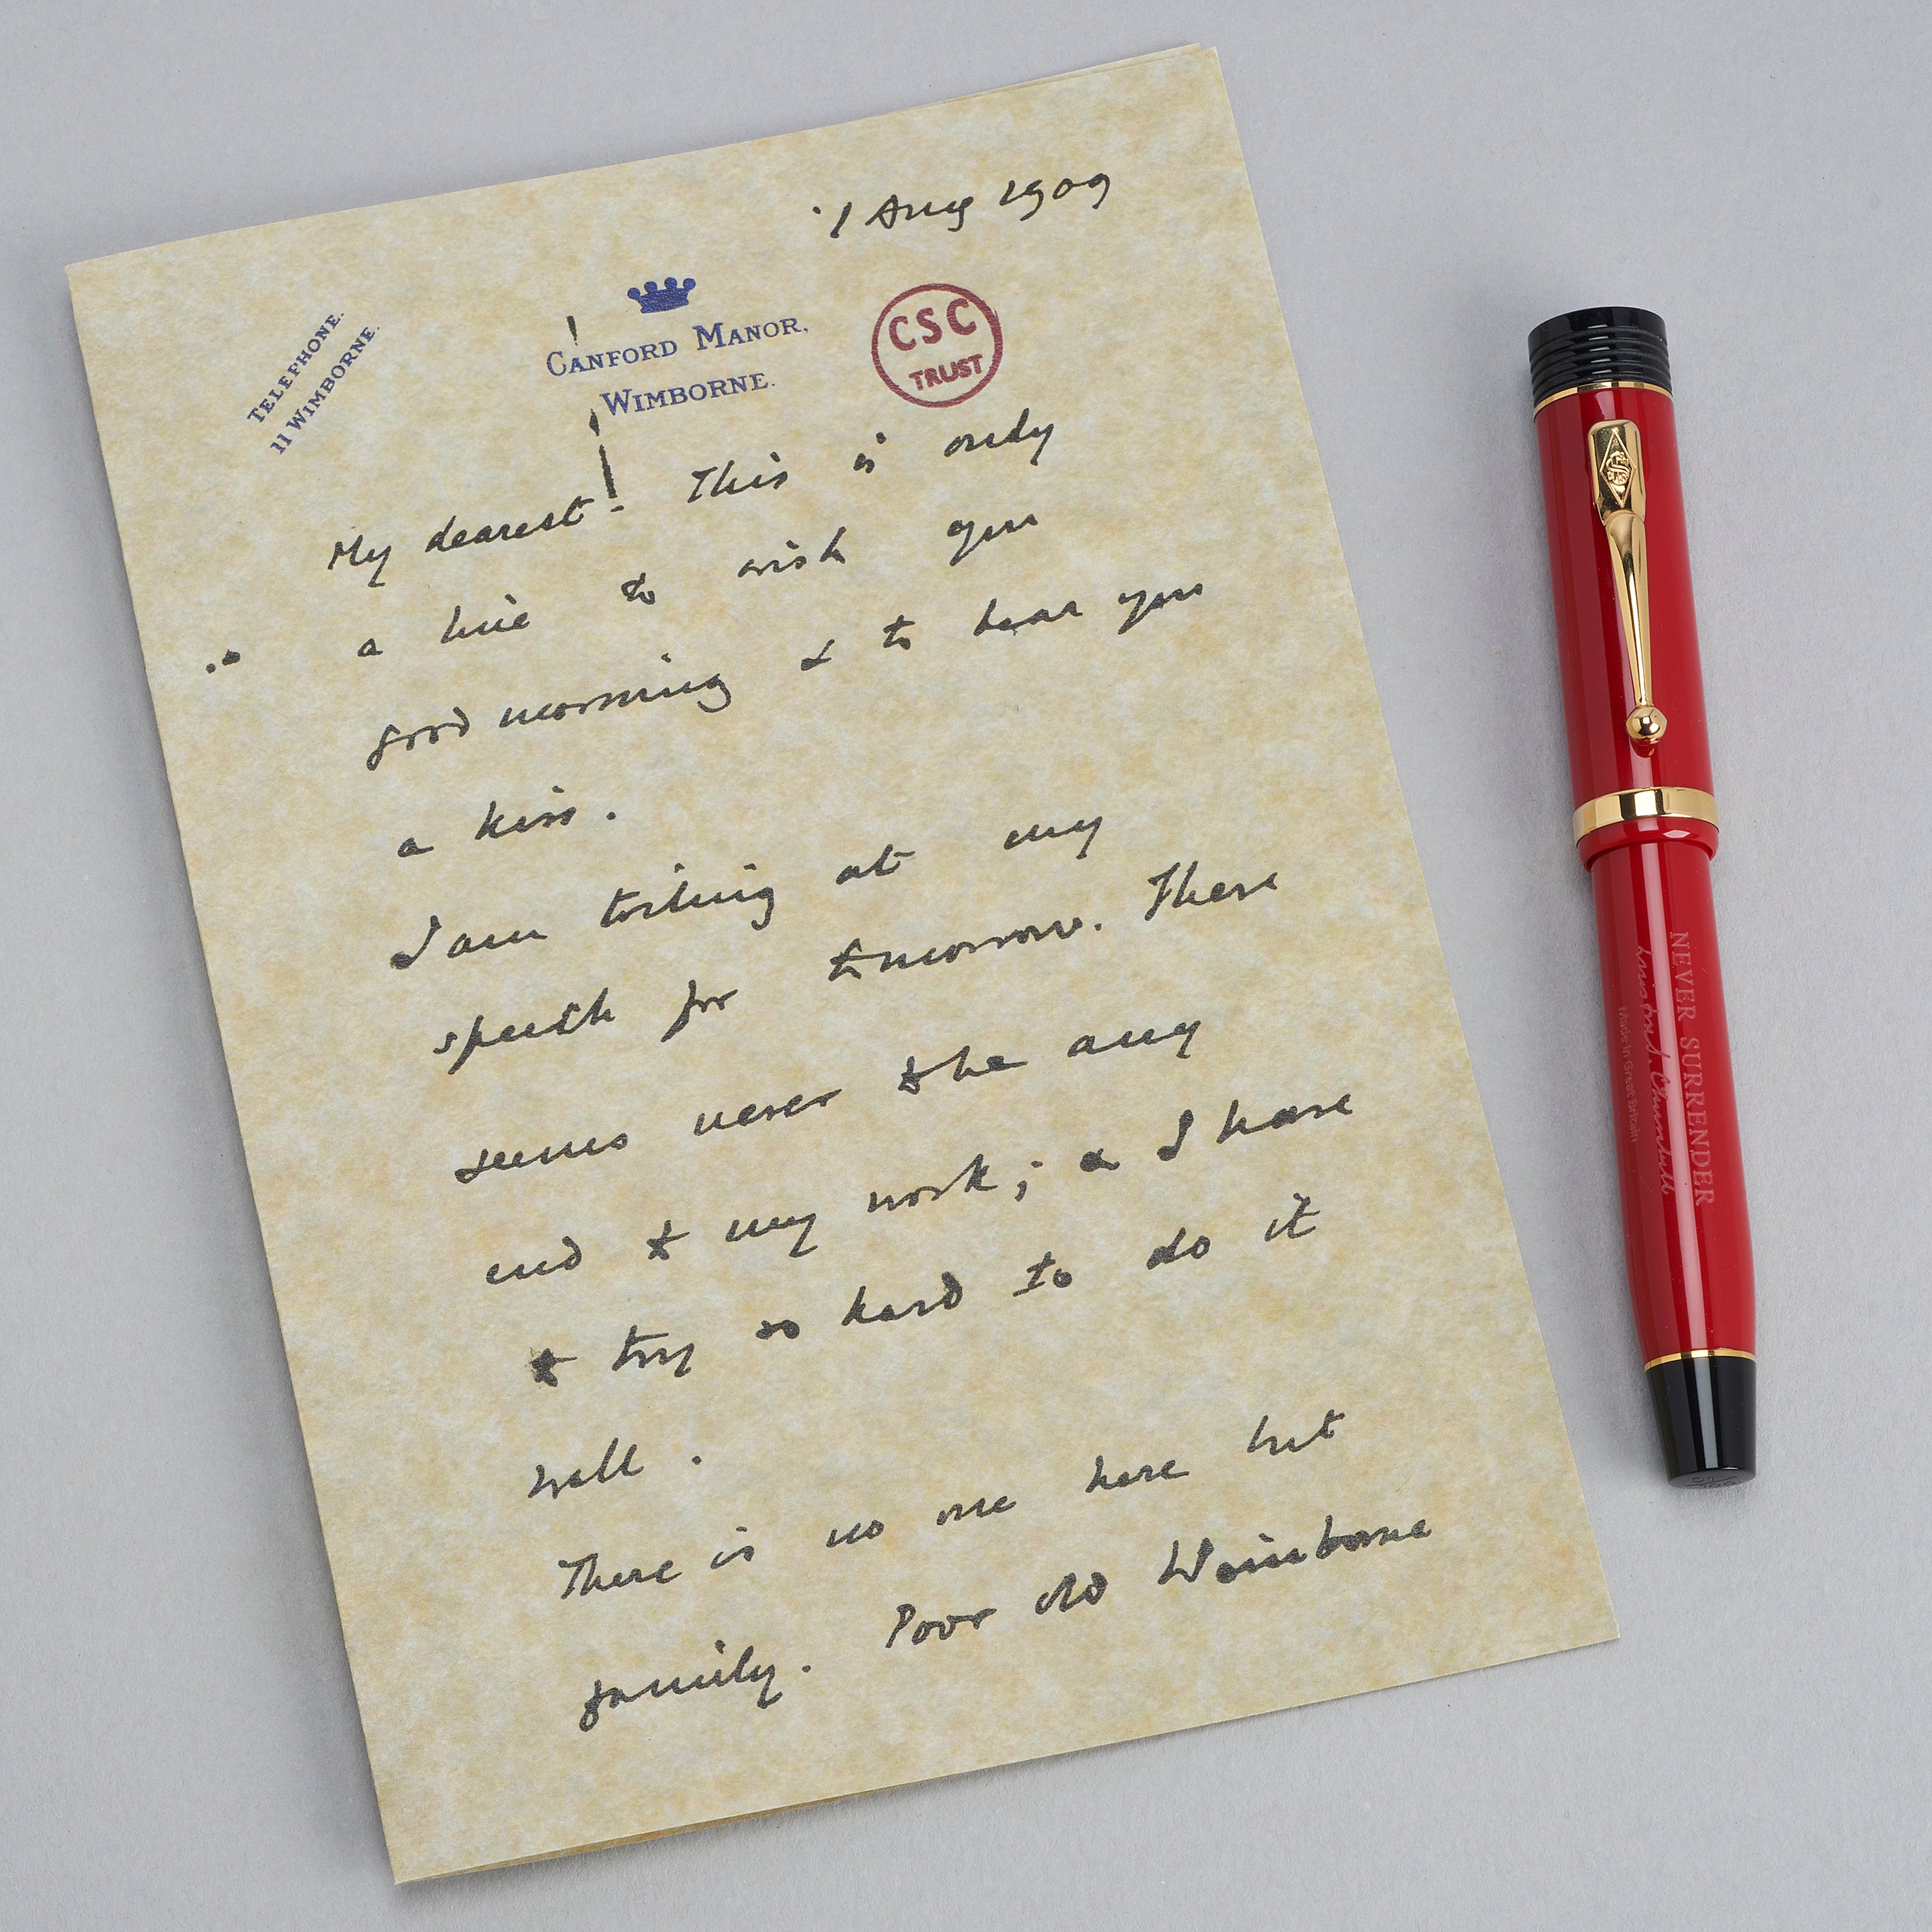 1 Aug 1909
TELEPHONE.
11 WIMBORNE.
CANFORD MANOR,
WIMBORNE.
CSC
TRUST
My dearest! This is only
a line to wish you
good morning & to bear you
a kiss.
I am toiling at my
speech for tomorrow. There
seems never to be any
end to my work; & I have
to try so hard to do it
well.
There is no one here but
family. Poor old Wimborne
NEVER SURRENDER
Winston S. Churchill
Made in Great Britain